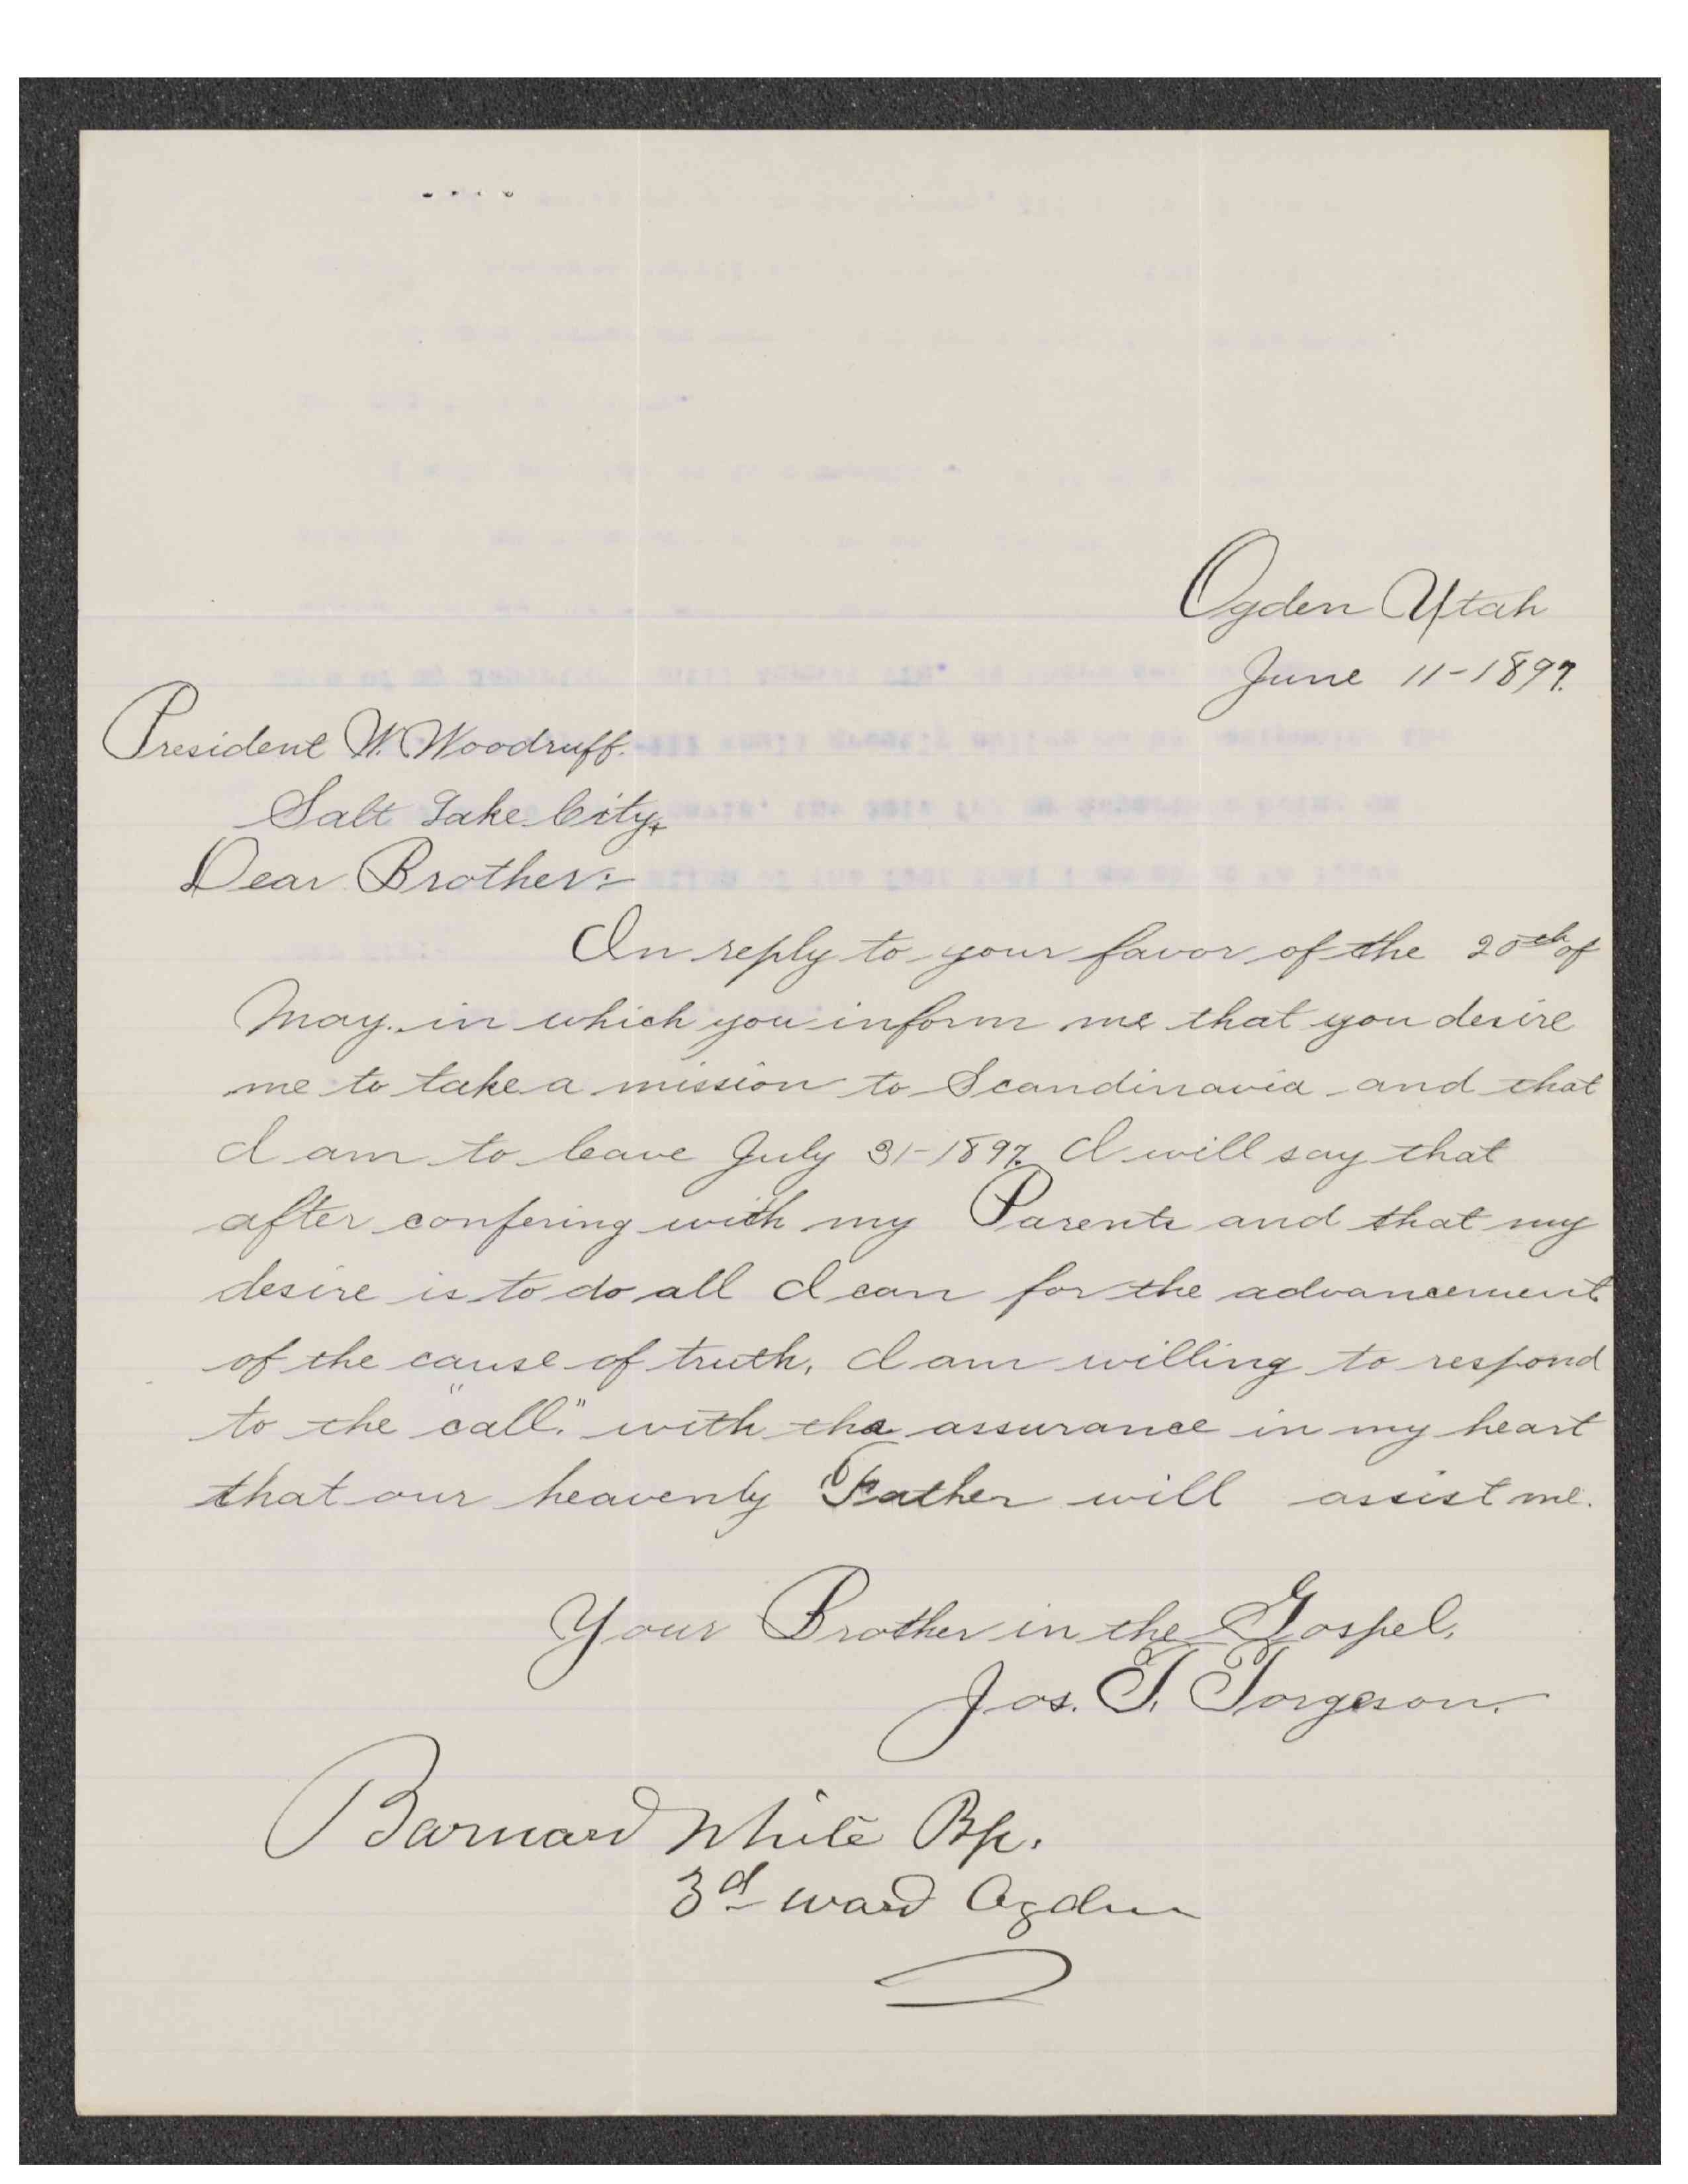 Ogden Utah
June 11-1897.
President W. Woodruff.
Salt Lake City,
Dear Brother:-
In reply to your favor of the 20th of
May. in which you inform me that you desire
me to take a mission to Scandinavia and that
I am to leave July 31-1897. I will say that
after confering with my Parents and that my
desire is to do all I can for the advancement
of the cause of truth, I am willing to respond
to the "call." with the assurance in my heart
that our heavenly Father will assist me.
Your Brother in the Gospel,
Jos. T. Torgeson.
Barnard White Bp.
3d ward Ogden